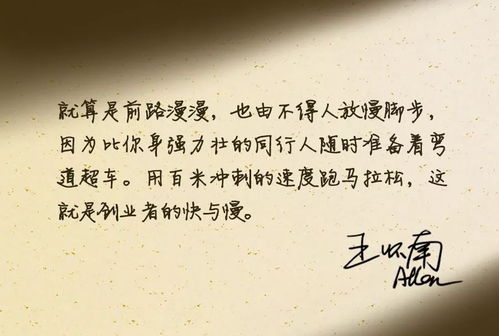 就算是前路漫漫，也由不得人放慢脚步，
因为比你身强力壮的同行人随时准备着弯
道超车。用百米冲刺的速度跑马拉松，这
就是创业者的快与慢。
王怀南
Allen